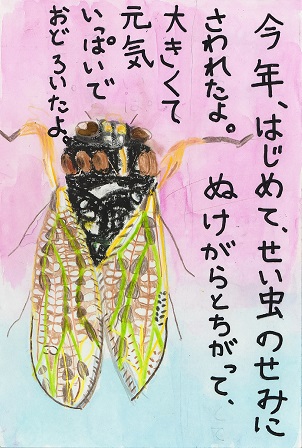 今年、はじめて、せい虫のせみに
さわれたよ。ぬけがらとちがって、
大きくて
元気
いっぱいで
おどろいたよ。